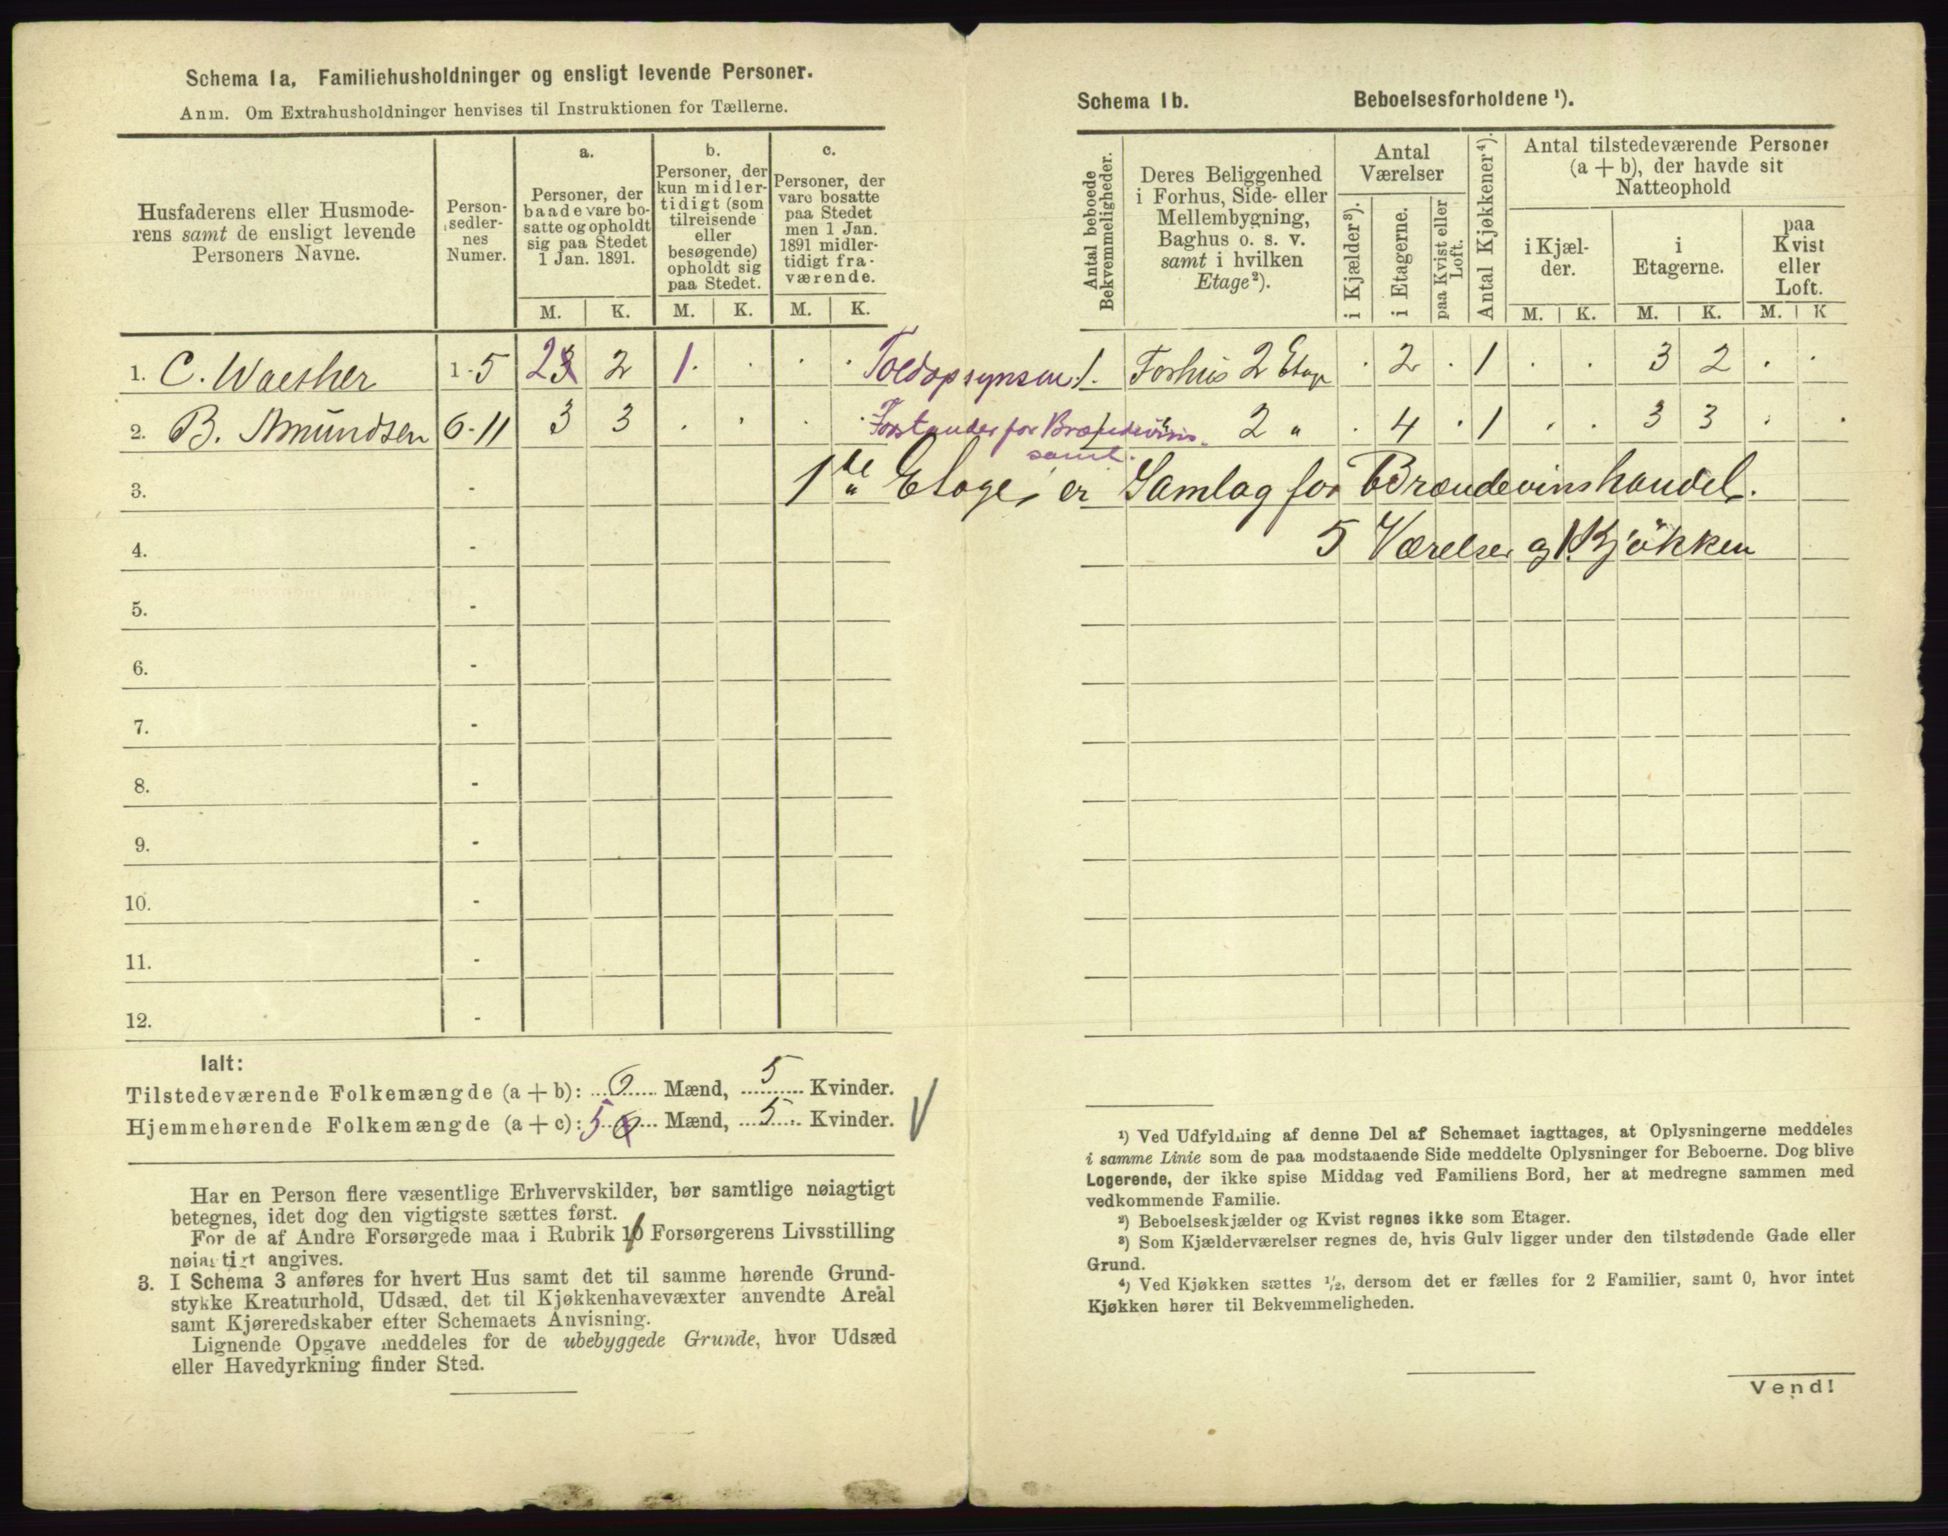 Schema 1a, Familiehusholdninger og ensligt levende Personer.
Anm. Om Extrahusholdninger henvises til Instruktionen for Tællerne.
Husfaderens eller Husmode-
rens samt de ensligt levende
Personers Navne.
Person-
sedler-
nes
Numer.
a.
Personer, der
baade vare bo-
satte og opholdt
sig paa Stedet
1 Jan. 1891.
b.
Personer, der
kun midler-
tidigt (som
tilreisende
eller
besøgende)
opholdt sig
paa Stedet.
c.
Personer, der
vare bosatte
paa Stedet
men 1 Jan.
1891 midler-
tidigt fra-
værende.
M. K. M. K. M. K.
1. C. Waesher 1-5 23 2 1 . . . Toldopsynsm.
2. B. Amundsen 6-11 3 3 . . . . Forstander for Brændevins-
saml.
3. -
4. -
5. -
6. -
7. -
8. -
9. -
10. -
11. -
12. -
Ialt:
Tilstedeværende Folkemængde (a + b): 6 Mænd, 5 Kvinder.
Hjemmehørende Folkemængde (a + c): 5 6 Mænd, 5 Kvinder.
Har en Person flere væsentlige Erhvervskilder, bør samtlige nøiagtigt
betegnes, idet dog den vigtigste sættes først.
For de af Andre Forsørgede maa i Rubrik 10 Forsørgerens Livsstilling
nøiagtigt angives.
3. I Schema 3 anføres for hvert Hus samt det til samme hørende Grund-
stykke Kreaturhold, Udsæd, det til Kjøkkenhavevæxter anvendte Areal
samt Kjøreredskaber efter Schemaets Anvisning.
Lignende Opgave meddeles for de ubebyggede Grunde, hvor Udsæd
eller Havedyrkning finder Sted.
Schema 1b. Beboelsesforholdene ¹).
Antal beboede
Bekvemmeligheder.
Deres Beliggenhed
i Forhus, Side- eller
Mellembygning,
Baghus o. s. v.
samt i hvilken
Etage²).
Antal
Værelser
i Kjælder³).
i Etagerne.
paa Kvist eller
Loft.
Antal Kjøkkener⁴).
Antal tilstedeværende Personer
(a + b), der havde sit
Natteophold
i Kjæl-
der.
i
Etagerne.
paa
Kvist
eller
Loft.
M. K. M. K. M. K
1. Forhus 2 Etage . 2 . 1 . . 3 2 . .
1 " 2 " . 4 . 1 . . 3 3 . .
1ste Etage er Samlag for Brændevinshandel.
5 Værelser og 1 Kjøkken
¹) Ved Udfyldning af denne Del af Schemaet iagttages, at Oplysningerne meddeles
i samme Linie som de paa modstaaende Side meddelte Oplysninger for Beboerne. Dog blive
Logerende, der ikke spise Middag ved Familiens Bord, her at medregne sammen med
vedkommende Familie.
²) Beboelseskjælder og Kvist regnes ikke som Etager.
³) Som Kjælderværelser regnes de, hvis Gulv ligger under den tilstødende Gade eller
Grund.
⁴) Ved Kjøkken sættes ¹/₂, dersom det er fælles for 2 Familier, samt 0, hvor intet
Kjøkken hører til Bekvemmeligheden.
Vend!